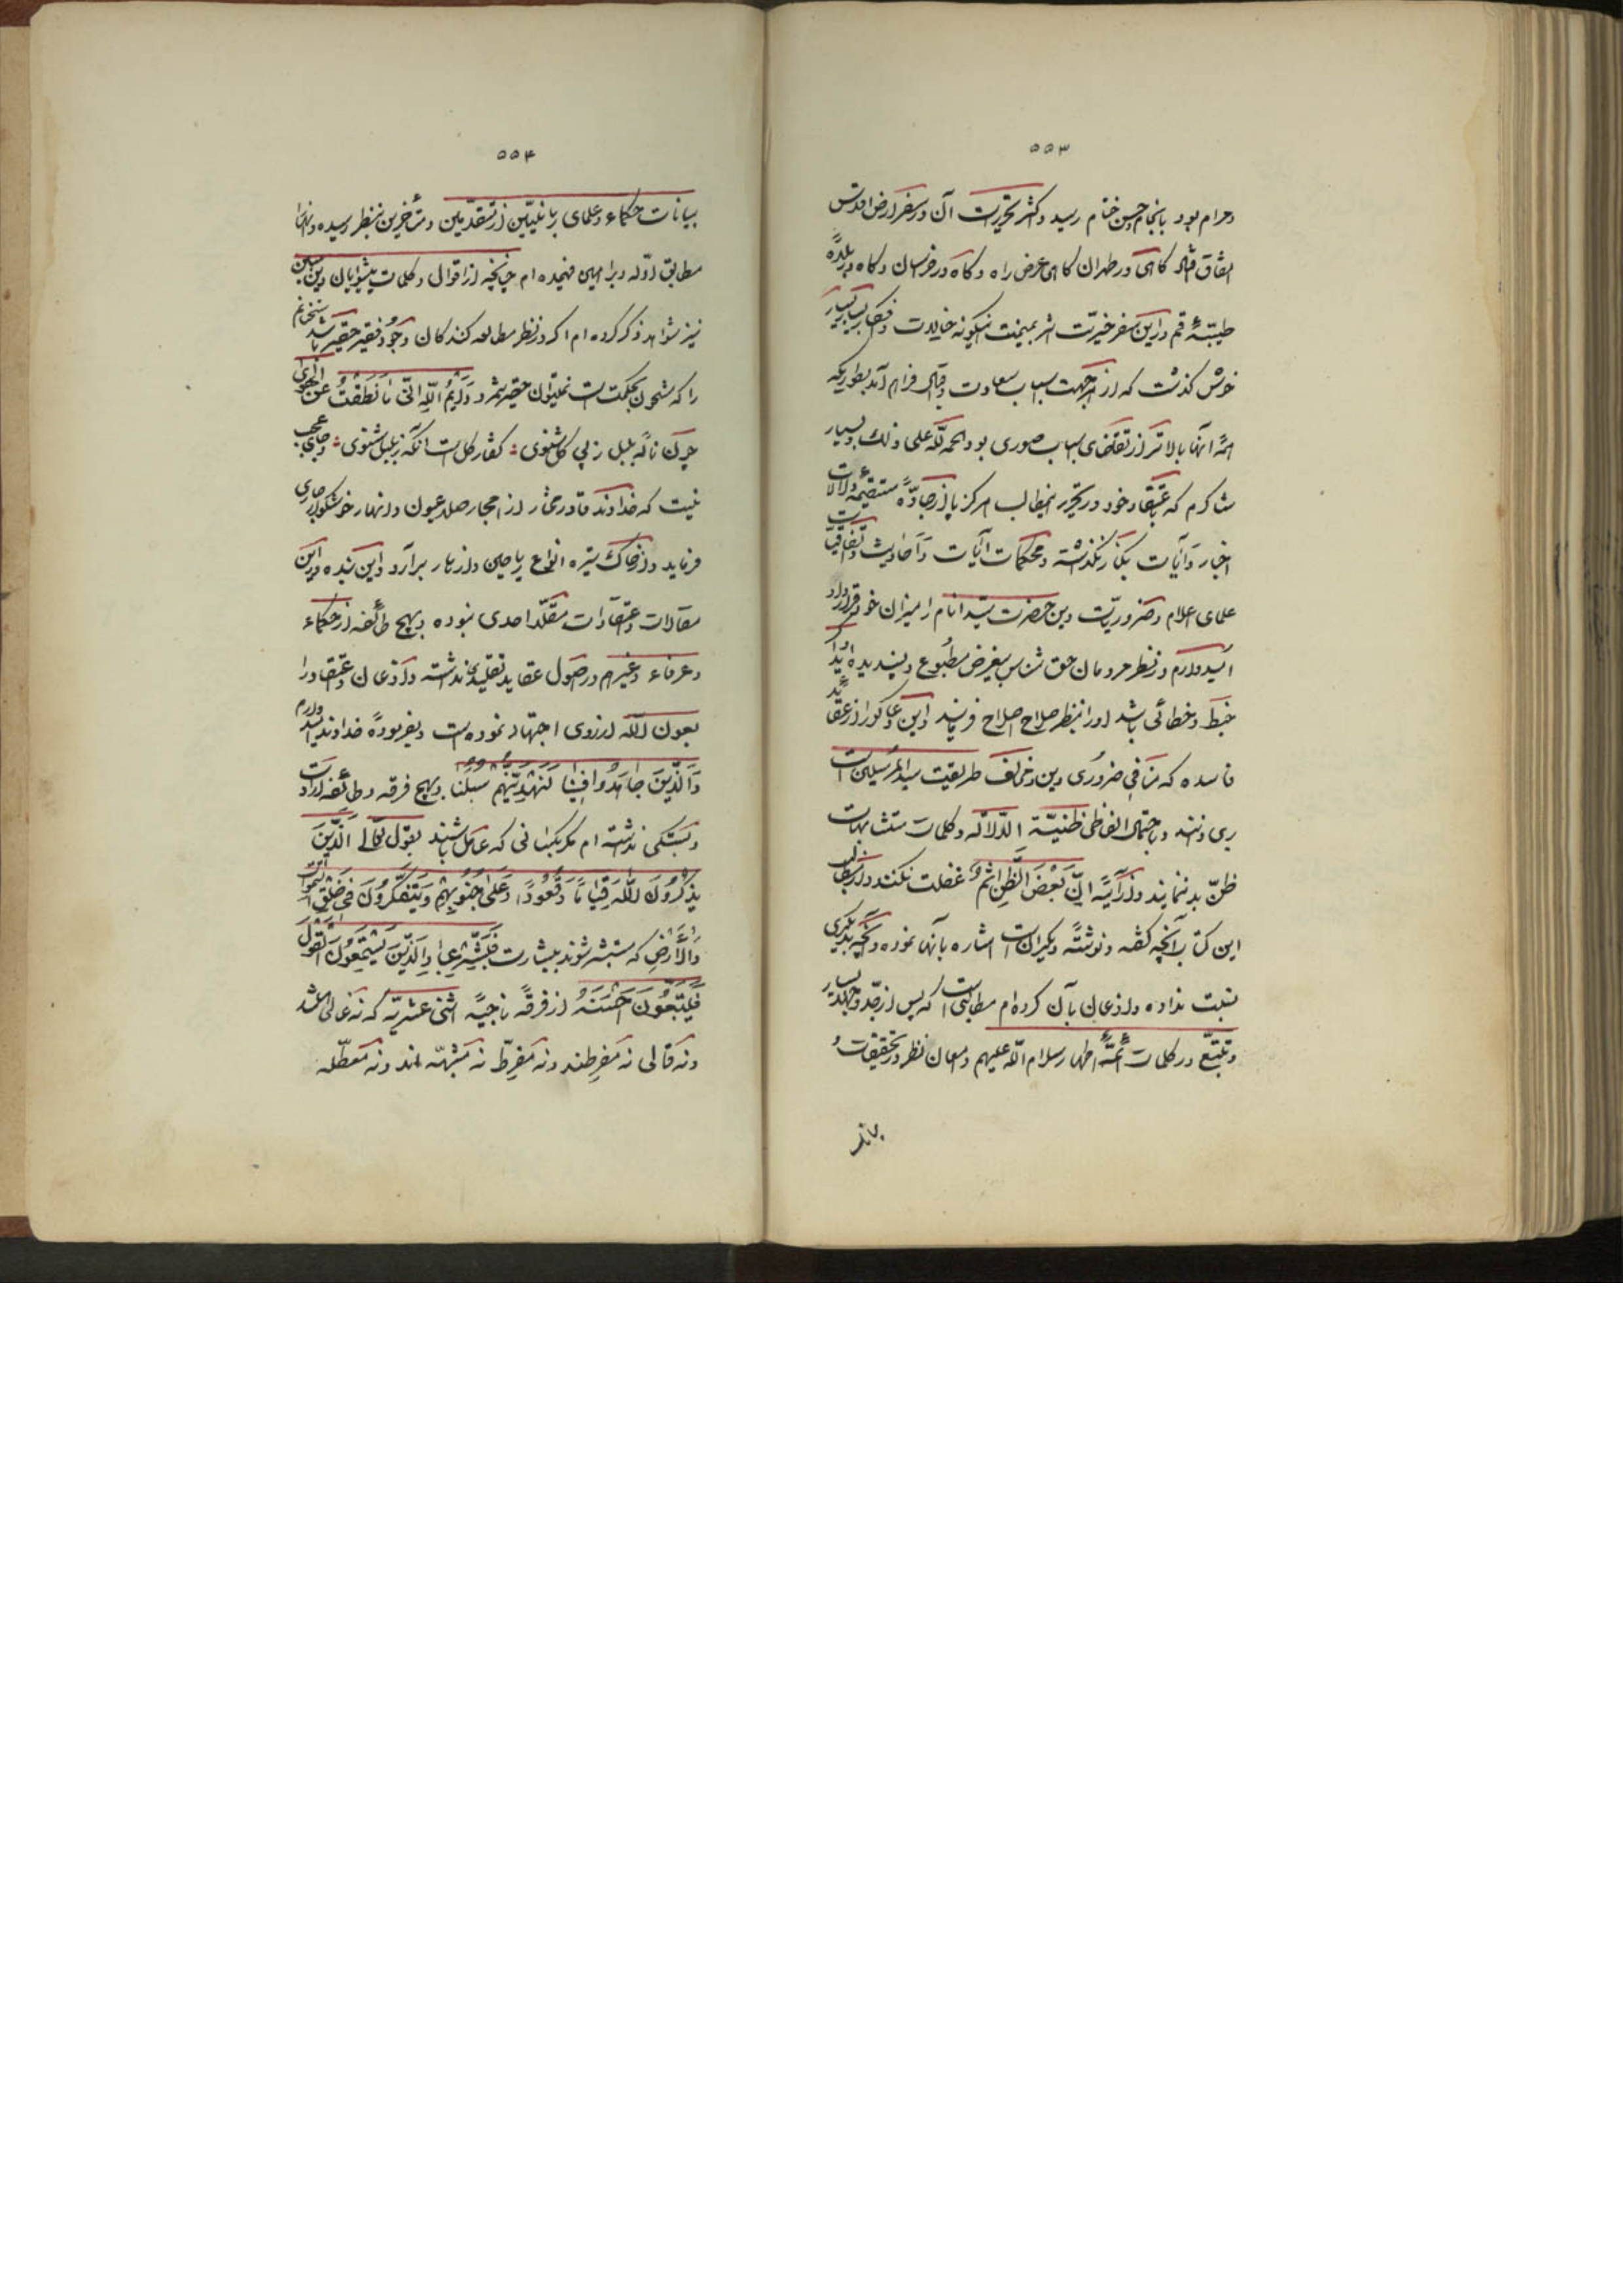 ۵۵۳
وحرام بود بانجام حسن ختام رسید واکثر تحریرات آن در سفر ارض اقدس
اتفاق افتاد گاهی در طهران گاهی عرض راه وگاه در خراسان وگاه در بلدهٔ
طیبهٔ قم ودر این سفر خیریت اثر بمیمنت اینگونه خیالات وافکار بسیار بسیار
خوش گذشت که از هر جهت اسباب سعادت واقبال فراهم آمد بطوریکه
همهٔ آنها بالاتر از تقاضای اسباب صوری بود والحمد لله علی ذلک وبسیار
شاکرم که باعتقاد خود در تحریر اینمطالب هرگز پا از جادهٔ مستقیمهٔ دلالات
اخبار وآیات بکنار نگذاشته ومحکمات آیات واحادیث واتفاقیات
علمای اعلام وضروریات دین حضرت سید انام را میزان خود قرار داده
امیدوارم در نظر مردمان حق شناس بیغرض مطبوع وپسندیده آید اگر
خبط وخطائی باشد او را بنظر صلاح اصلاح فرمایند واین دعاگو را از عقاید
فاسده که منافی ضروری دین ومخالف طریقت سید المرسلین است
بری دانند وباحتمال الفاظ ظنیة الدلاله وکلمات متشابهات
ظن بد ننمایند واز آیهٔ ان بعض الظن اثم غفلت نکنند واز مطالب
این کتاب آنچه گفته ونوشتهٔ دیگران است اشاره بآنها نموده وآنچه بدیگری
نسبت نداده واذعان بآن کرده‌ام مطالبی است که پس از جد وجهد بسیار
وتتبع در کلمات ائمهٔ اطهار سلام الله علیهم وامعان نظر در تحقیقات و
بیانات
۵۵۴
بیانات حکماء وعلمای ربانیین از متقدمین ومتأخرین بنظر رسیده وآنها را
مطابق ادله وبراهین فهمیده‌ام چنانچه از اقوال وکلمات پیشوایان دین مبین
نیز شواهد ذکر کرده‌ام اگر در نظر مطالعه کنندگان وجود فقیر حقیر باشد سخنانم
را که مشحون بحکمت است نمیتوان حقیر شمرد وایم الله انی ما نطقت عن الهوی
چون نالهٔ بلبل ز پی گل شنوی : گفتار گل است آنکه ز بلبل شنوی : وجای عجب
نیست که خداوند قادر مختار از احجار صلد عیون وانهار خوشگوار جاری
فرماید واز خاک تیره انواع ریاحین وازهار برآرد واین بنده در این
مقالات واعتقادات مقلد احدی نبوده وبهیچ طائفه از حکماء
وعرفاء وغیرهم در اصول عقاید تقلید نداشته واذعان واعتقاد را
بعون الله از روی اجتهاد نموده است وبفرمودهٔ خداوند امید دارم
والذین جاهدوا فینا لنهدینهم سبلنا وبهیچ فرقه وطائفه ارادت
وبستگی نداشته‌ام مگر بکسانی که عامل باشند بقول تعالی الذین
یذکرون الله قیاما وقعودا وعلی جنوبهم ویتفکرون فی خلق السموات
والارض که مستبشر شوند ببشارت فبشر عبادی الذین یستمعون القول
فیتبعون احسنه از فرقهٔ ناجیهٔ اثنی عشریه که نه غالی باشند
ونه قالی نه مفرطند ونه مفرط نه مشبهه اند ونه معطله